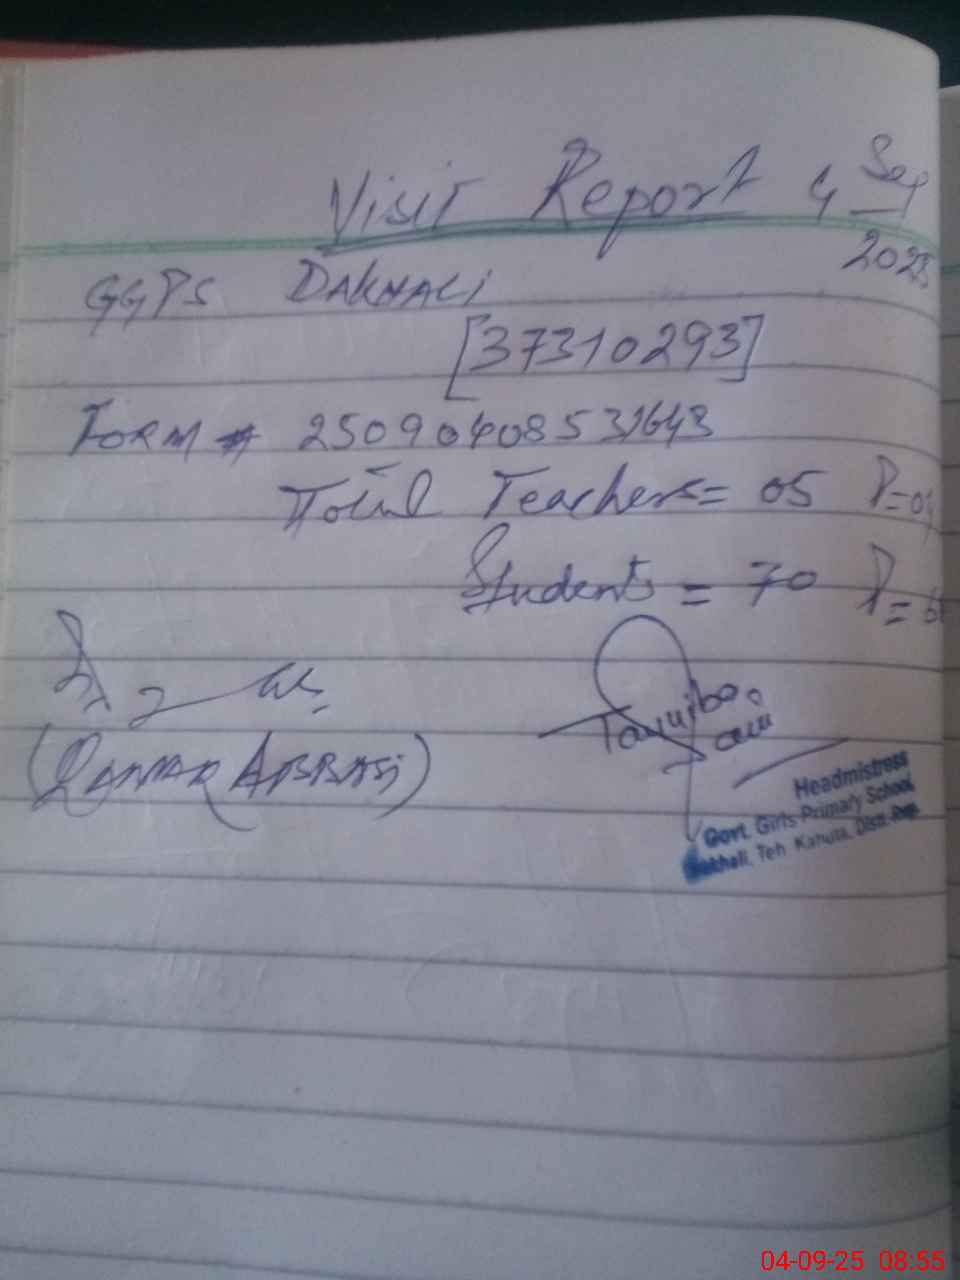 Visit Report 4 Sep
2025
GGPS DAKHALI
[37310293]
FORM # 250904085331643
Total Teachers = 05 P=04
Students = 70 P=6
(QAMAR ABBASI)
Headmistress
Govt. Girls Primary School,
Dakhali, Teh. Kahuta, Distt. Rwp.
04-09-25 08:55